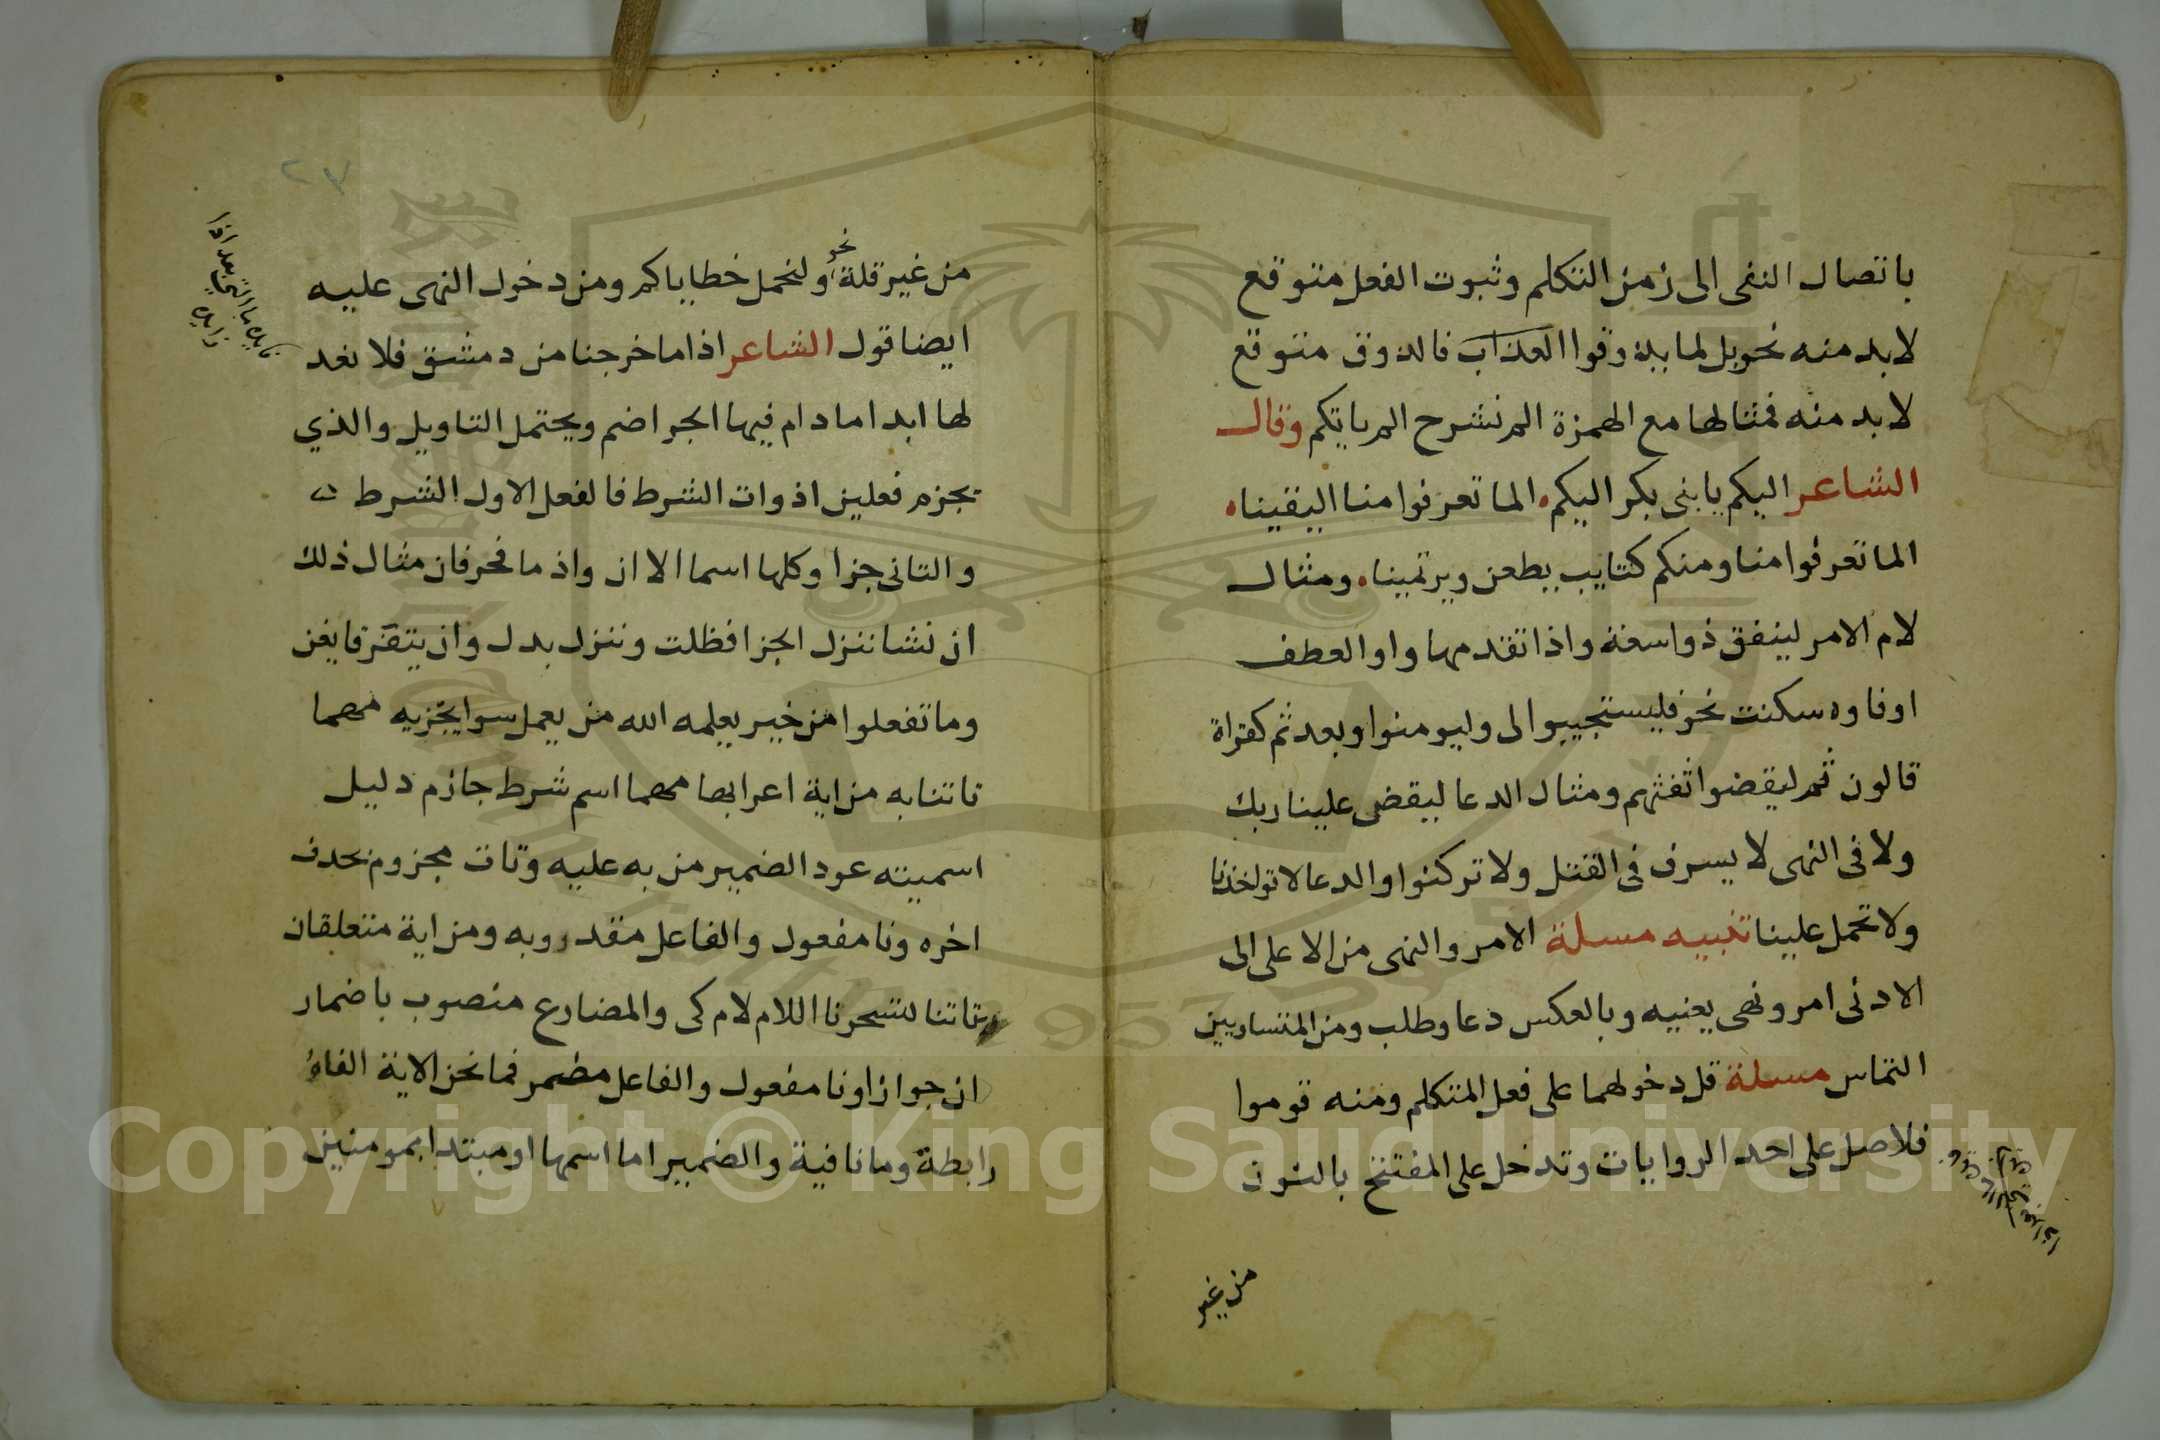 باتصال النفى الى زمن التكلم وثبوت الفعل متوقع
لابد منه نحو بل لما يذوقوا العذاب فالذوق متوقع
لابد منه فمثالها مع الهمزة الم نشرح الم ياتكم وقال
الشاعر اليكم يا بنى بكر اليكم الما تعرفوا منا اليقينا
الما تعرفوا منا ومنكم كتايب يطعن ويرتمينا ومثال
لام الامر لينفق ذواسعة واذا تقدمها واو العطف
اوفاوه سكنت نحو فليستجيبوا لى وليومنوا وبعد ثم كقراة
قالون ثم ليقضوا تفثهم ومثال الدعا ليقض علينا ربك
ولا فى النهى لا يسرف فى القتل ولا تركنوا والدعا لا تواخذنا
ولا تحمل علينا تنبيه مسلة الامر والنهى من الاعلى الى
الادنى امر ونهى يعنيه وبالعكس دعا وطلب ومن المتساويين
التماس مسلة قل دخولهما على فعل المتكلم ومنه قوموا
فلاصل على احد الروايات وتدخل على المفتتح بالنون
من غير
٢٧
من غير قلة نحو ولنحمل خطاياكم ومن دخول النهى عليه
ايضا قول الشاعر اذا ما خرجنا من دمشق فلا نعد
لها ابدا ما دام فيها الجراضم ويحتمل التاويل والذي
يجزم فعلين اذوات الشرط فالفعل الاول الشرط
والثانى جزا وكلها اسما الا ان واذ ما فحرفان مثال ذلك
ان نشا ننزل الجزا فظلت وننزل بدل وان يتفرقا يغن
وما تفعلوا من خير يعلمه الله من يعمل سوا يجزيه مهما
تاتنا به من اية اعرابها مهما اسم شرط جازم دليل
اسميته عود الضمير من به عليه وتات مجزوم بحذف
اخره ونا مفعول والفاعل مقدر وبه ومن اية متعلقان
بتاتنا لتسحرنا اللام لام كى والمضارع منصوب باضمار
ان جوازا ونا مفعول والفاعل مضمر فما نحن الاية الفاؤ
رابطة وما نافية والضمير اما اسمها او مبتدا بمومنين